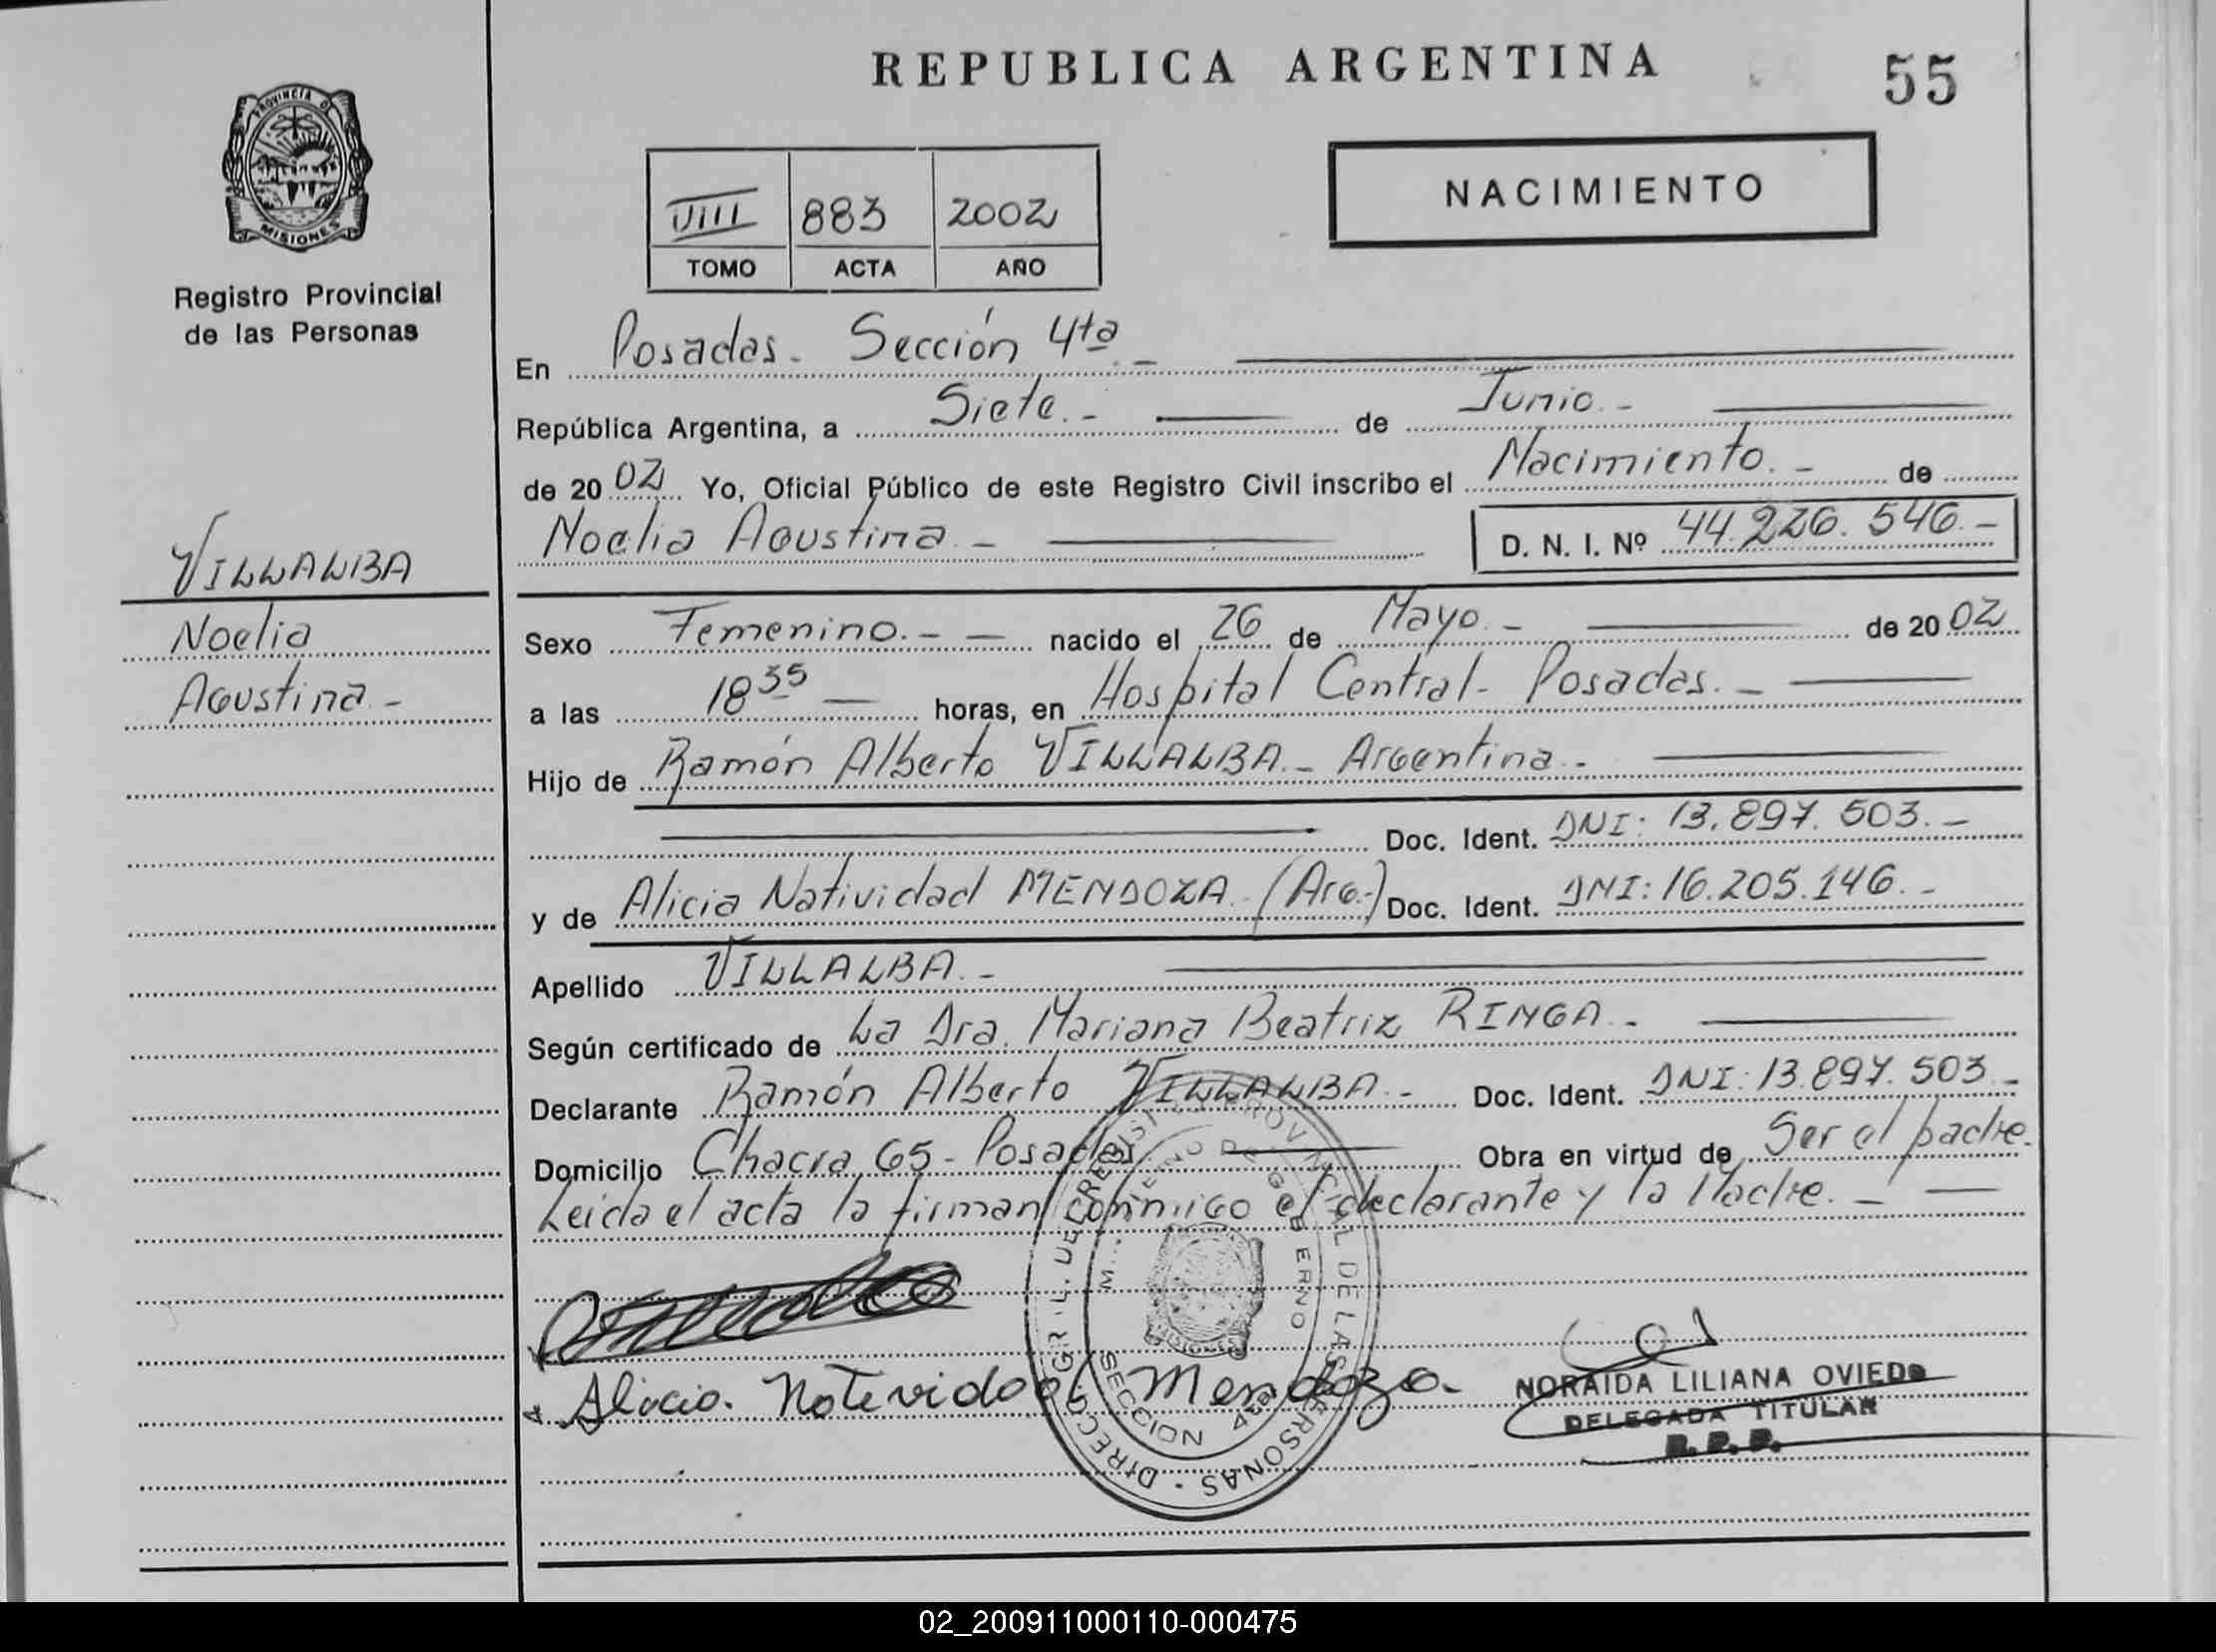 REPUBLICA ARGENTINA
55
PROVINCIA DE
MISIONES
Registro Provincial
de las Personas
VIIII 883 2002
TOMO ACTA AÑO
NACIMIENTO
En Posadas.- Sección 4ta.-
República Argentina, a Siete.- de Junio.-
de 2002 Yo, Oficial Público de este Registro Civil inscribo el Nacimiento.- de
Noelia Agustina.- D. N. I. Nº 44.226.546.-
VILLALBA
Noelia
Agustina.-
Sexo Femenino.- nacido el 26 de Mayo.- de 2002
a las 18 35 horas, en Hospital Central- Posadas.-
Hijo de Ramón Alberto VILLALBA.- Argentina.-
Doc. Ident. DNI: 13.897.503.-
y de Alicia Natividad MENDOZA.- (Arg.-) Doc. Ident. DNI: 16.205.146.-
Apellido VILLALBA.-
Según certificado de La Dra. Mariana Beatriz RINGA.-
Declarante Ramón Alberto VILLALBA.- Doc. Ident. DNI: 13.897.503.-
Domicilio Chacra 65- Posadas Obra en virtud de Ser el padre.
Leida el acta la firman conmigo el declarante y la Madre.-
Alicia. Notevidad Mendoza.
DIRECC. GRAL. DE REGIST PROVINCIAL DE LAS PERSONAS
GOBIERNO
MISIONES
SECCION 4ta
NORAIDA LILIANA OVIEDO
DELEGADA TITULAR
R. P. P.
02_200911000110-000475